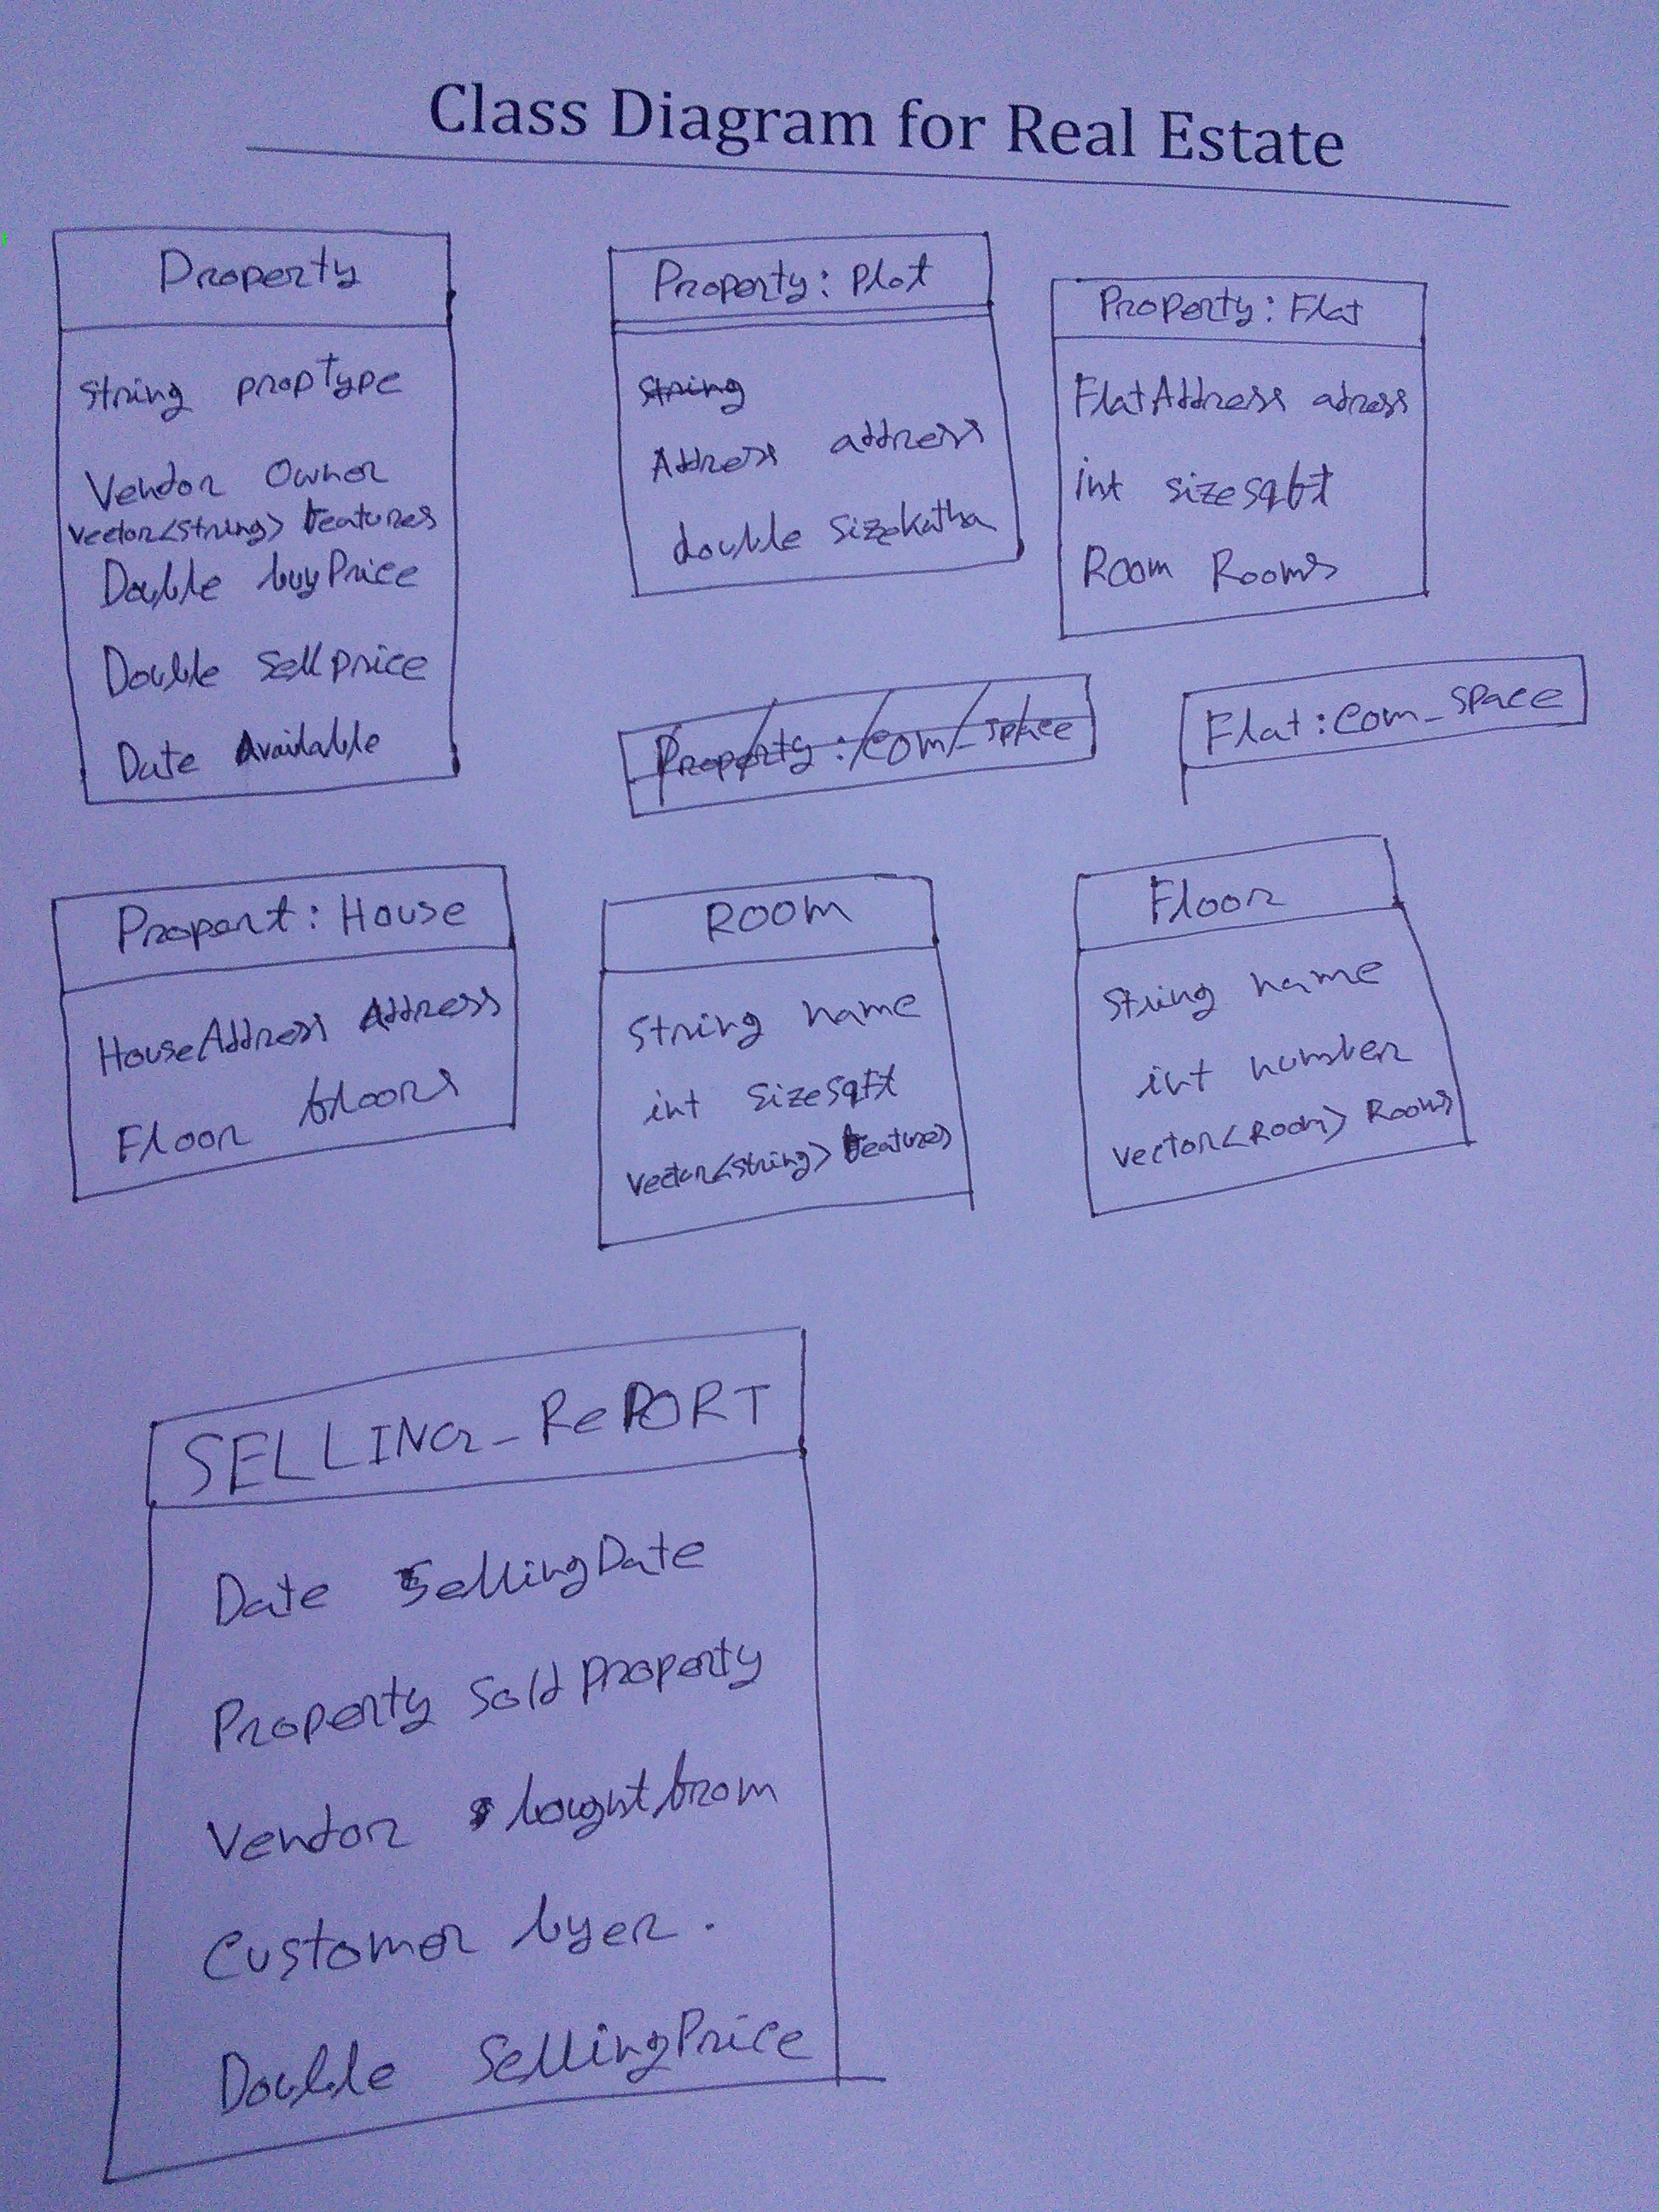 Class Diagram for Real Estate
Property
String propType
Vendor Owner
vector<string> features
Double buyPrice
Double sellprice
Date Available
Property: Plot
String
Address address
double sizekatha
Property: Flat
FlatAddress adress
int sizesqft
Room Rooms
Property: com_space
Flat: com_space
Propert: House
HouseAddress Address
Floor floors
ROOM
String name
int sizesqft
vector<string> features
Floor
String name
int number
vector<Room> Rooms
SELLING_RePORT
Date SellingDate
Property SoldProperty
Vendor boughtfrom
Customer byer.
Double SellingPrice